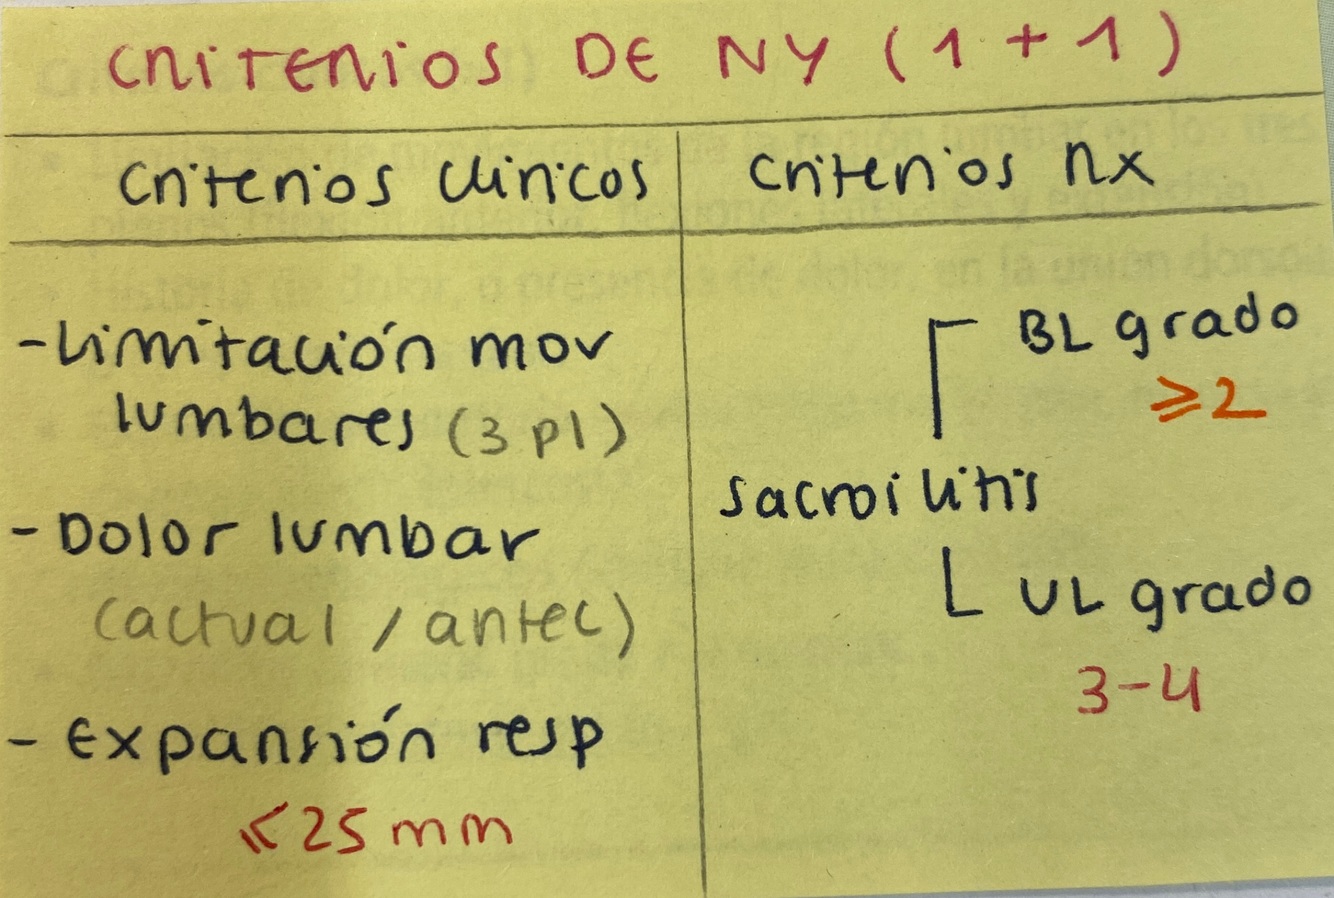 CRITERIOS DE NY (1 + 1)
Criterios clínicos
- Limitación mov
lumbares (3 pl)
- Dolor lumbar
(actual / antec)
- Expansión resp
≤ 25 mm
Criterios RX
BL grado
≥2
Sacroilitis
UL grado
3-4